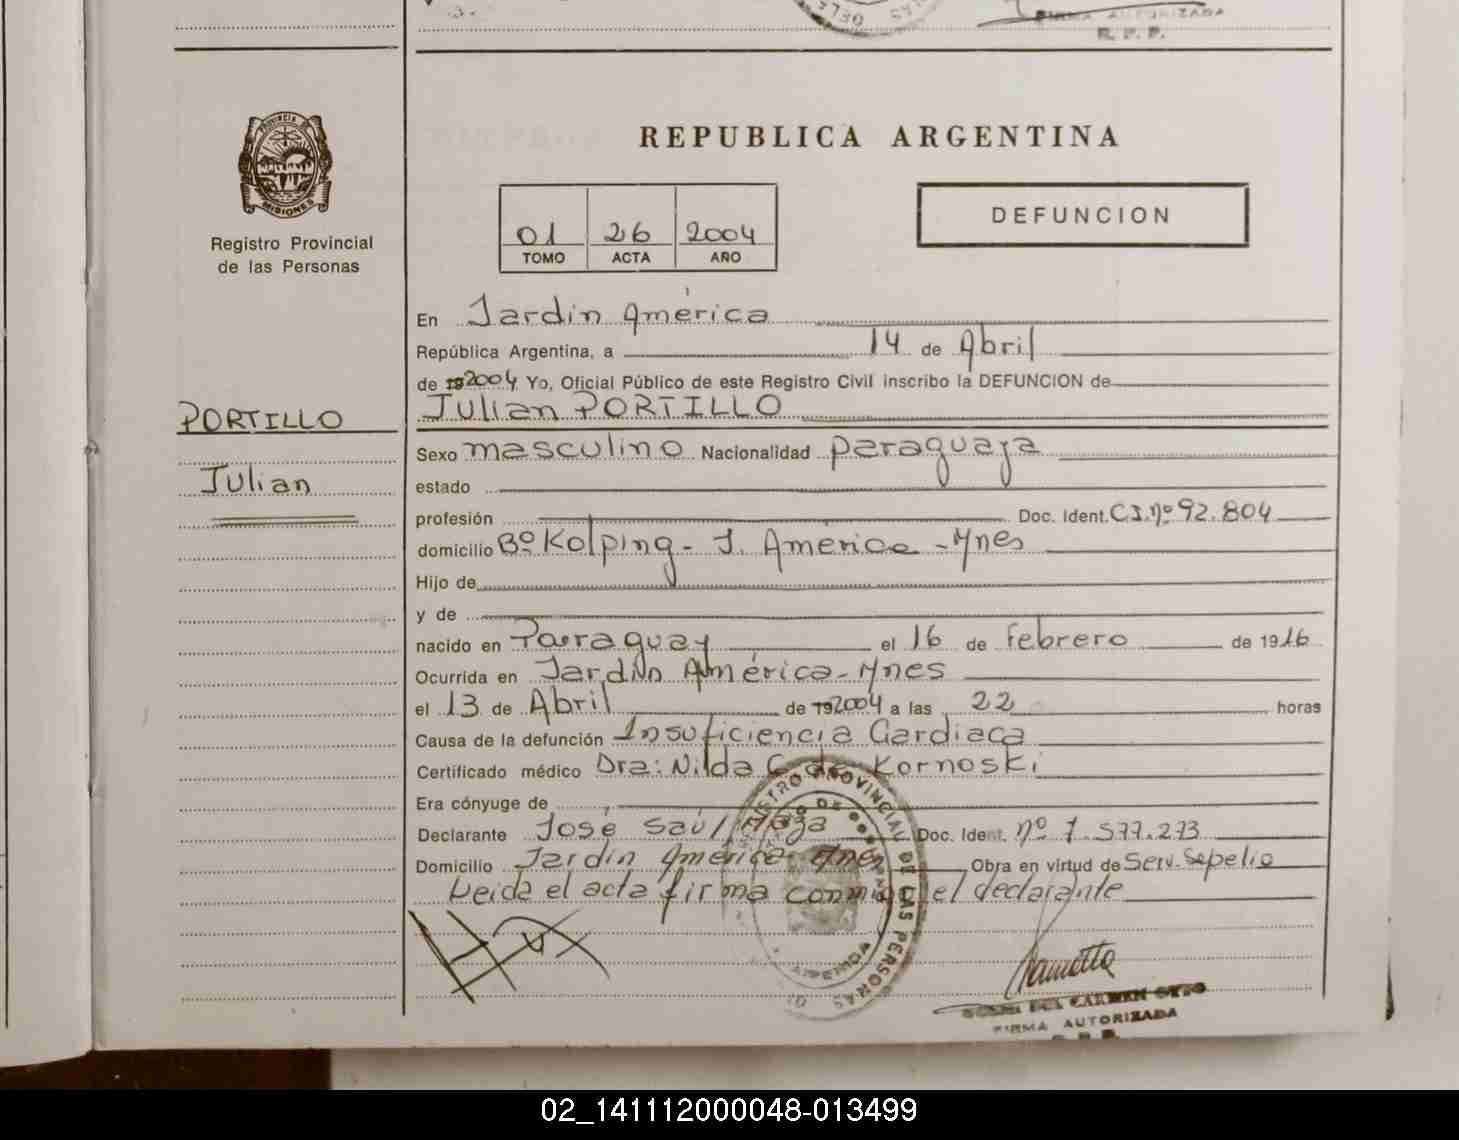 FIRMA AUTORIZADA
R. P. P.
Provincia de
MISIONES
Registro Provincial
de las Personas
REPUBLICA ARGENTINA
01 26 2004
TOMO ACTA AÑO
DEFUNCION
En Jardín América
República Argentina, a 14 de Abril
de 2004 Yo, Oficial Público de este Registro Civil inscribo la DEFUNCION de
PORTILLO
Julian
Julian PORTILLO
Sexo masculino Nacionalidad paraguaya
estado
profesión Doc. Ident. C.I. nº 92.804
domicilio Bº Kolping - J. América - Mnes
Hijo de
y de
nacido en Paraguay el 16 de Febrero de 1916
Ocurrida en Jardín América - Mnes
el 13 de Abril de 2004 a las 22 horas
Causa de la defunción Insuficiencia Cardiaca
Certificado médico Dra: Nilda C. de Kornoski
Era cónyuge de
Declarante José Saúl Doc. Ident. nº 7.577.273
Domicilio Jardín América - Mnes Obra en virtud de Serv. Sepelio
Leida el acta firma conmigo el declarante
REGISTRO PROVINCIAL DE LAS PERSONAS
DEL CARMEN
FIRMA AUTORIZADA
R. P. P.
02_141112000048-013499